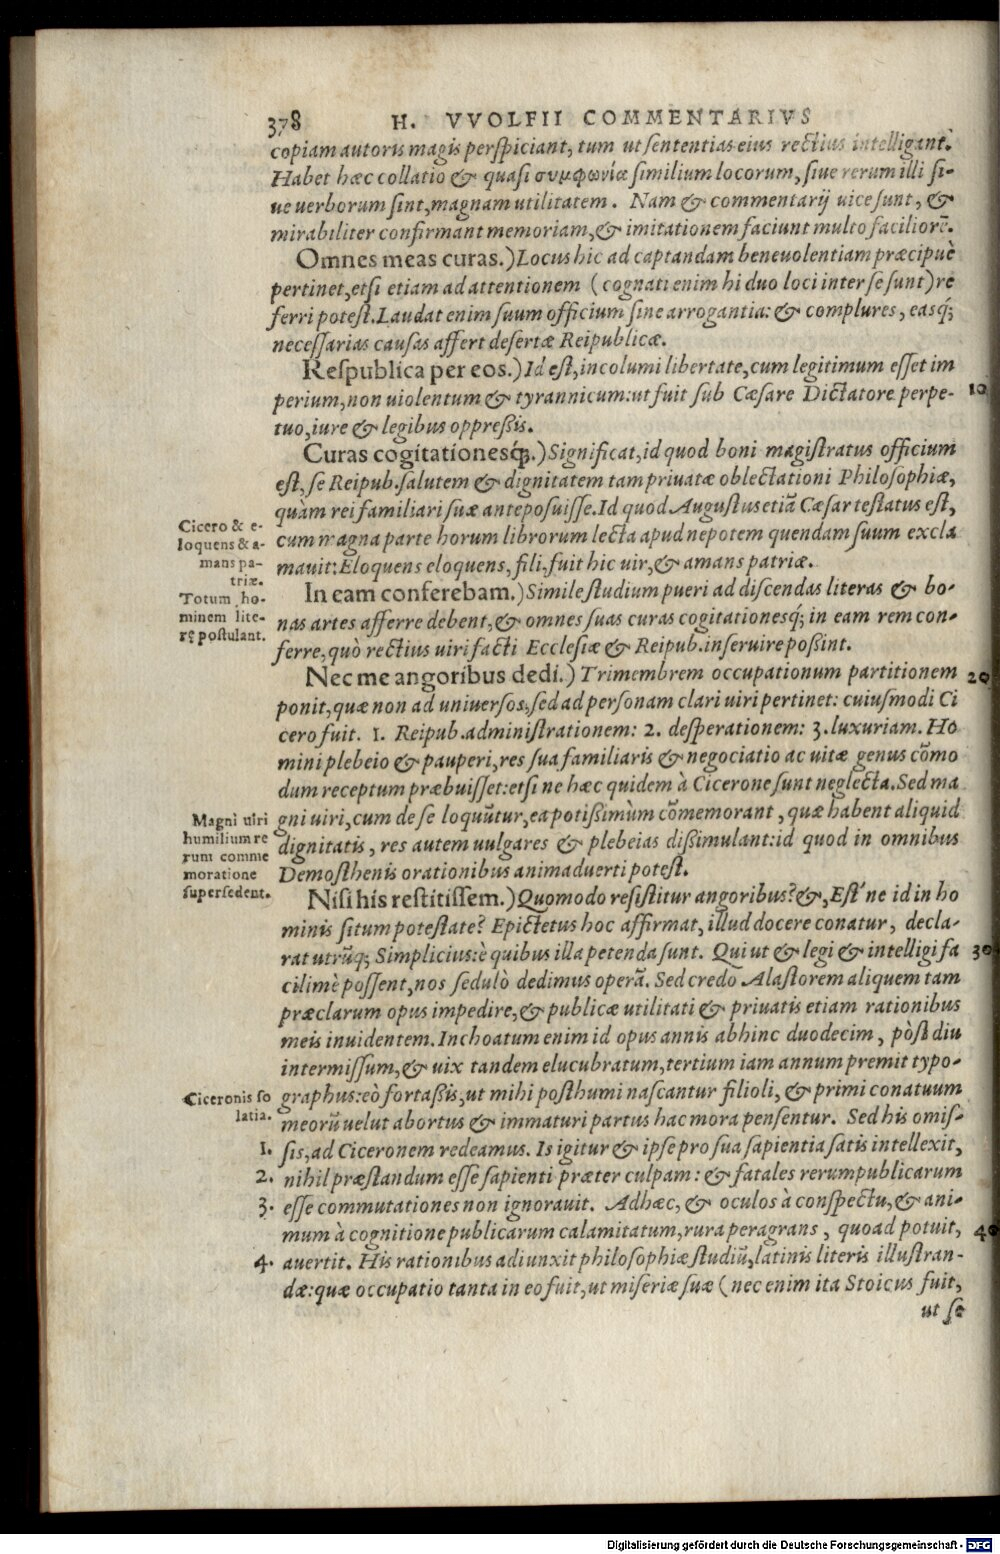 378 H. VVOLFII COMMENTARIVS
copiam autoris magis perspiciant, tum ut sententias eius rectius intelligant.
Habet hæc collatio & quasi συμφωνία similium locorum, siue rerum illi si-
ue uerborum sint, magnam utilitatem. Nam & commentarij uice sunt, &
mirabiliter confirmant memoriam, & imitationem faciunt multo faciliorē.
Omnes meas curas.) Locus hic ad captandam beneuolentiam præcipuè
pertinet, etsi etiam ad attentionem (cognati enim hi duo loci inter se sunt) re
ferri potest. Laudat enim suum officium sine arrogantia: & complures, easq́;
necessarias causas affert desertæ Reipublicæ.
Respublica per eos.) Id est, incolumi libertate, cum legitimum esset im
perium, non uiolentum & tyrannicum: ut fuit sub Cæsare Dictatore perpe- 10
tuo, iure & legibus oppreßis.
Curas cogitationesq́;.) Significat, id quod boni magistratus officium
est, se Reipub. salutem & dignitatem tam priuatæ oblectationi Philosophiæ,
quàm rei familiari suæ anteposuisse. Id quod Augustus etiā Cæsar testatus est,
Cicero & e-
loquens & a-
mans pa-
triæ.
cum magna parte horum librorum lecta apud nepotem quendam suum excla
mauit: Eloquens eloquens, fili, fuit hic uir, & amans patriæ.
Totum ho-
minem lite-
rę postulant.
In eam conferebam.) Simile studium pueri ad discendas literas & bo-
nas artes afferre debent, & omnes suas curas cogitationesq́; in eam rem con-
ferre, quò rectius uiri facti Ecclesiæ & Reipub. inseruire poßint.
Nec me angoribus dedi.) Trimembrem occupationum partitionem 20
ponit, quæ non ad uniuersos, sed ad personam clari uiri pertinet: cuiusmodi Ci
cero fuit. 1. Reipub. administrationem: 2. desperationem: 3. luxuriam. Ho
mini plebeio & pauperi, res sua familiaris & negociatio ac uitæ genus cōmo
dum receptum præbuisset: etsi ne hæc quidem à Cicerone sunt neglecta. Sed ma
Magni uiri
humilium re
rum comme
moratione
supersedent.
gni uiri, cum de se loquūtur, ea potißimùm cōmemorant, quæ habent aliquid
dignitatis, res autem uulgares & plebeias dißimulant: id quod in omnibus
Demosthenis orationibus animaduerti potest.
Nisi his restitissem.) Quomodo resistitur angoribus? &, Est'ne id in ho
minis situm potestate? Epictetus hoc affirmat, illud docere conatur, decla-
rat utrūq; Simplicius: è quibus illa petenda sunt. Qui ut & legi & intelligi fa 30
cilimè possent, nos sedulò dedimus operā. Sed credo Alastorem aliquem tam
præclarum opus impedire, & publicæ utilitati & priuatis etiam rationibus
meis inuidentem. Inchoatum enim id opus annis abhinc duodecim, pòst diu
intermissum, & uix tandem elucubratum, tertium iam annum premit typo-
Ciceronis so
latia.
graphus: eò fortaßis, ut mihi posthumi nascantur filioli, & primi conatuum
meorū uelut abortus & immaturi partus hac mora pensentur. Sed his omis-
1. sis, ad Ciceronem redeamus. Is igitur & ipse pro sua sapientia satis intellexit,
2. nihil præstandum esse sapienti præter culpam: & fatales rerumpublicarum
3. esse commutationes non ignorauit. Adhæc, & oculos à conspectu, & ani-
mum à cognitione publicarum calamitatum, rura peragrans, quoad potuit, 40
4. auertit. His rationibus adiunxit philosophiæ studiū, latinis literis illustran-
dæ: quæ occupatio tanta in eo fuit, ut miseriæ suæ (nec enim ita Stoicus fuit,
ut se
Digitalisierung gefördert durch die Deutsche Forschungsgemeinschaft - DFG